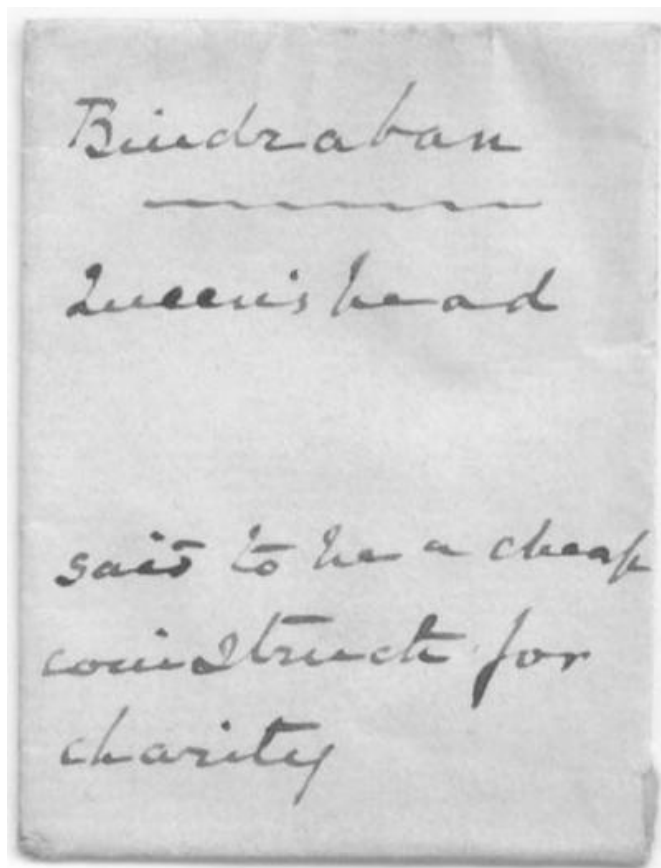 Bindraban
Queen's head
said to be a cheap
coin struck for
charity